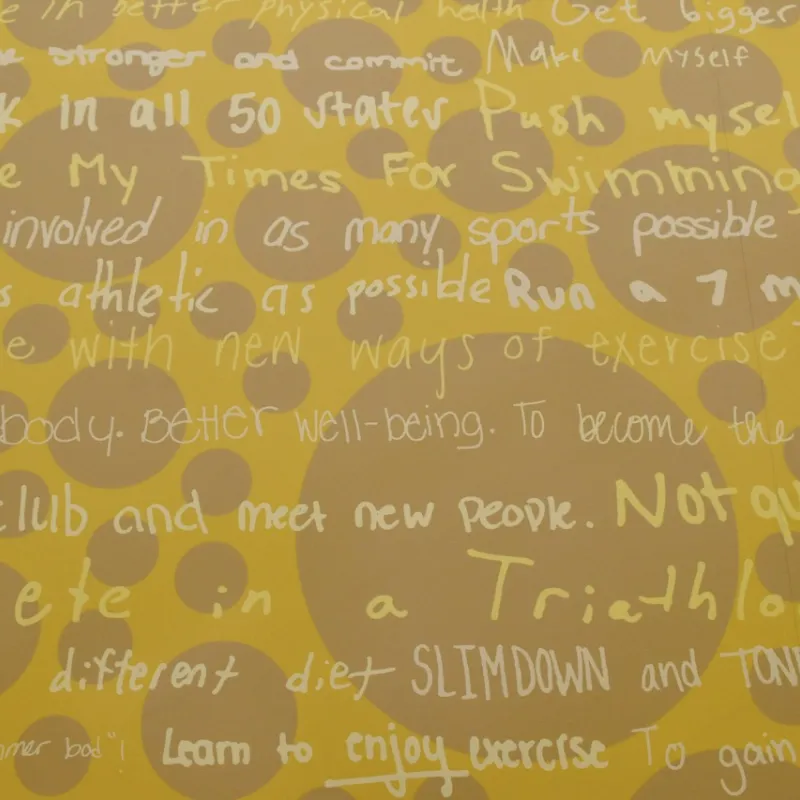 in better physical health Get bigger
stronger and commit Make myself
in all 50 states Push mysel
e My Times For Swimming
involved in as many sports possible
s athletic as possible Run a 7 m
e with new ways of exercise
body. Better well-being. To become the
club and meet new people. Not qu
ete in a Triathlo
different diet SLIMDOWN and TON
mmer bod"! Learn to enjoy exercise To gain